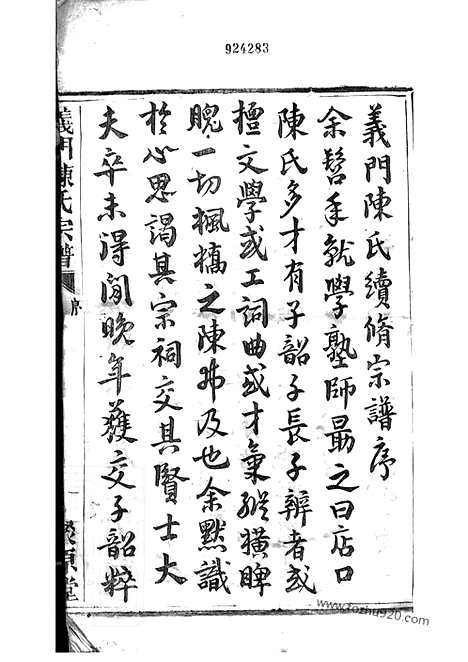 924283
義門陳氏續脩宗譜序
余髫年就學塾師勗之曰店口
陳氏多才有子韶子長子辨者或
擅文學或工詞曲或才氣縱橫睥
睨一切楓橋之陳弗及也余默識
於心思謁其宗祠交其賢士大
夫卒未得閒晚年獲交子韶粹
義門陳氏宗譜
序
一
堂
www.fozhu920.com